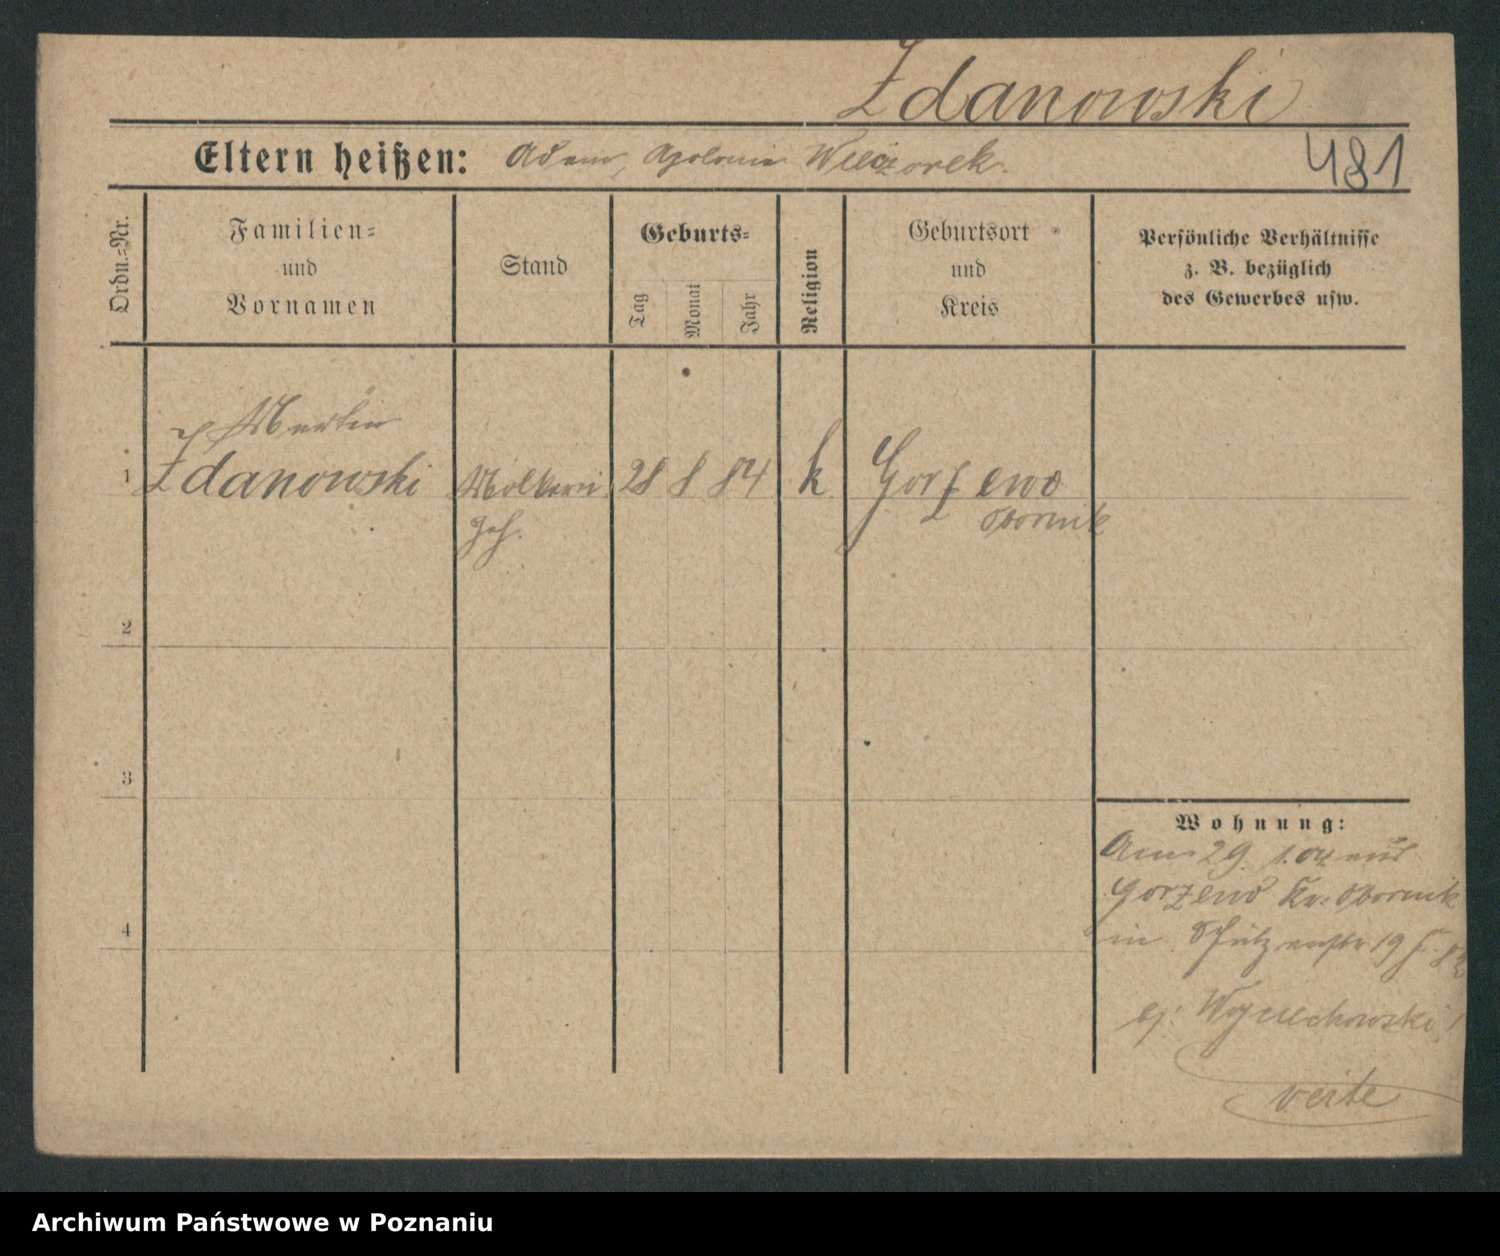 Zdanowski
Eltern heißen: Adam, Apolonia Wieczorek.
481
Ordn.-Nr.
Familien-
und
Vornamen
Stand
Geburts-
Tag
Monat
Jahr
Religion
Geburtsort
und
Kreis
Persönliche Verhältnisse
z. B. bezüglich
des Gewerbes usw.
Martin
1 Zdanowski Molkerei 28 8 84 k Gorzewo
Geh. Obornik
2
3
4
Wohnung:
Am 29. 1.04 aus
Gorzewo Kr. Obornik
in Schützenstr 19
bei Wojciechowski
verte
Archiwum Państwowe w Poznaniu